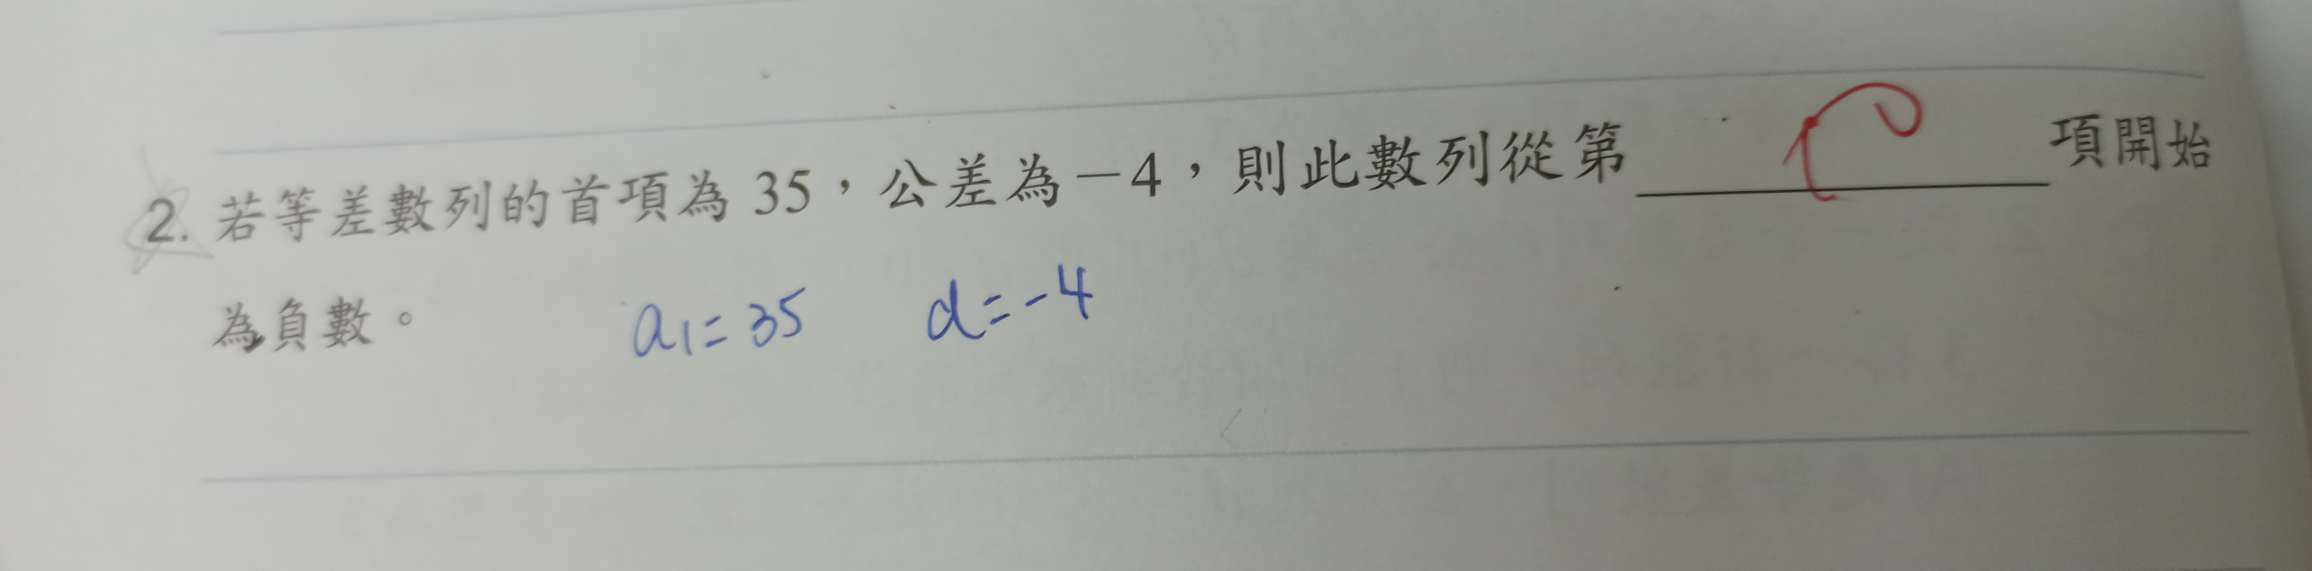 2. 若等差數列的首項為 35，公差為－4，則此數列從第＿＿＿＿項開始
為負數。
a₁=35 d=-4